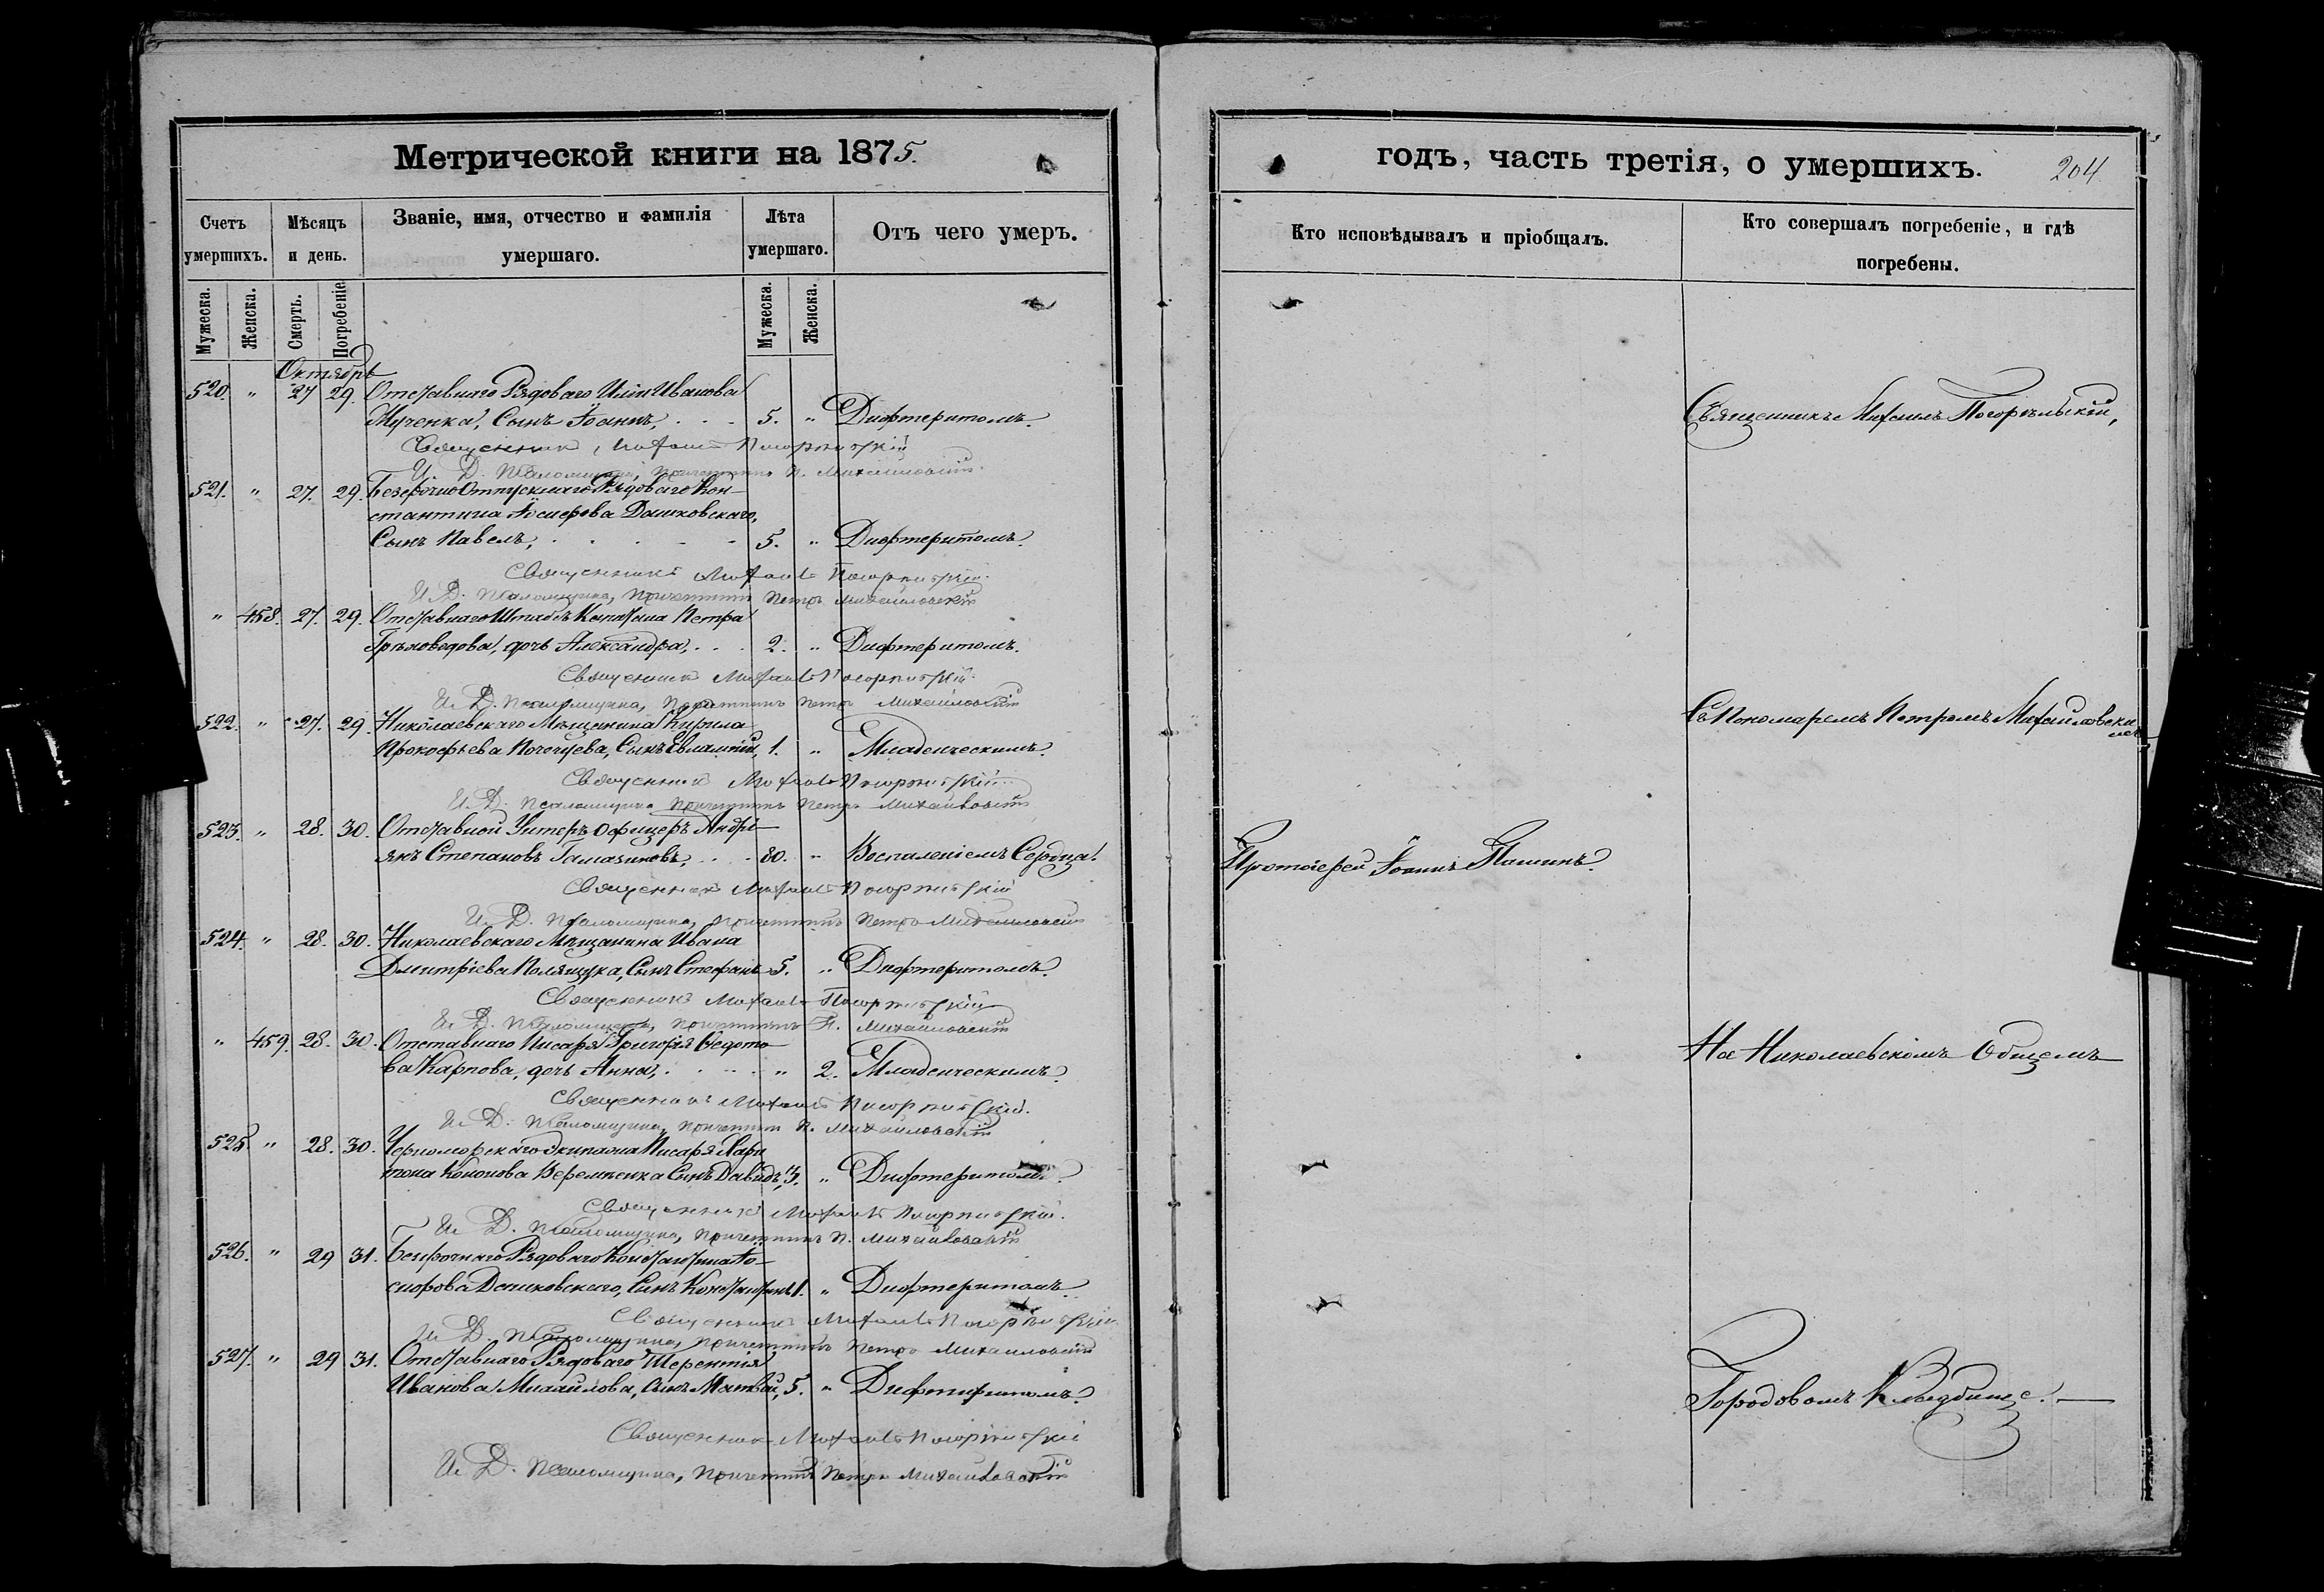 Метрической книги на 1875.
Счетъ умершихъ.
Мѣсяцъ и день.
Званіе, имя, отчество и фамилія умершаго.
Лѣта умершаго.
Отъ чего умеръ.
Мужеска. Женска. Смерть. Погребеніе Мужеска. Женска.
Октябрь
520. " 27 29. Отставнаго Рядоваго Иліи Иванова
Жученка, Сынъ Іоаннъ, 5. " Дифтеритомъ.
Священникъ Михаилъ Погорѣльскій
И. Д. Псаломщика, причетникъ П. Михайловскій
521. " 27. 29. Безсрочно Отпускнаго Рядоваго Кон-
стантина Дашковскаго,
Сынъ Павелъ, 5. " Дифтеритомъ.
Священникъ Михаилъ Погорѣльскій
И. Д. Псаломщика, причетникъ Петръ Михайловскій
" 458. 27. 29. Отставнаго Штабсъ Капитана Петра
дочь Александра, 2. " Дифтеритомъ.
Священникъ Михаилъ Погорѣльскій
И. Д. Псаломщика, Причетникъ Петръ Михайловскій
522. " 27. 29. Николаевскаго Мѣщанина Кирила
Прокофьева Сынъ Евлампій, 1. " Младенческимъ.
Священникъ Михаилъ Погорѣльскій
И. Д. Псаломщика Причетникъ Петръ Михайловскій
523. " 28. 30. Отставной Унтеръ Офицеръ Андрі-
янъ Степановъ 80. " Воспаленіемъ Сердца.
Священникъ Михаилъ Погорѣльскій
И. Д. Псаломщика, Причетникъ Петръ Михайловскій
524. " 28. 30. Николаевскаго Мѣщанина Ивана
Дмитріева Полящука, Сынъ Стефанъ 5. " Дифтеритомъ.
Священникъ Михаилъ Погорѣльскій
И. Д. Псаломщика, причетникъ П. Михайловскій
" 459. 28. 30. Отставнаго Писаря Григорія Ѳедото-
ва Карпова, дочь Анна, " 2. Младенческимъ.
Священникъ Михаилъ Погорѣльскій.
И. Д. Псаломщика, причетникъ П. Михайловскій
525. " 28. 30. Черноморскаго Экипажа Писаря Хари
тона Кононова Веремѣенка Сынъ Давидъ, 3. " Дифтеритомъ.
Священникъ Михаилъ Погорѣльскій.
И. Д. Псаломщика, причетникъ П. Михайловскій
526. " 29 31. Безсрочнаго Рядоваго Константина
Дашковскаго, Сынъ Константинъ 1. " Дифтеритомъ.
Священникъ Михаилъ Погорѣльскій
И. Д. Псаломщика, причетникъ Петръ Михайловскій
527. " 29 31. Отставнаго Рядоваго Терентія
Иванова Михайлова, сынъ Матвѣй, 5. " Дифтеритомъ.
Священникъ Михаилъ Погорѣльскій
И. Д. Псаломщика, Причетникъ Петръ Михайловскій
годъ, часть третія, о умершихъ. 204
Кто исповѣдывалъ и пріобщалъ.
Кто совершалъ погребеніе, и гдѣ погребены.
Священникъ Михаилъ Погорѣльскій,
Съ Пономаремъ Петромъ Михайловски
мъ
Протоіерей Іоаннъ
На Николаевскомъ Общемъ
Городовомъ Кладбище.